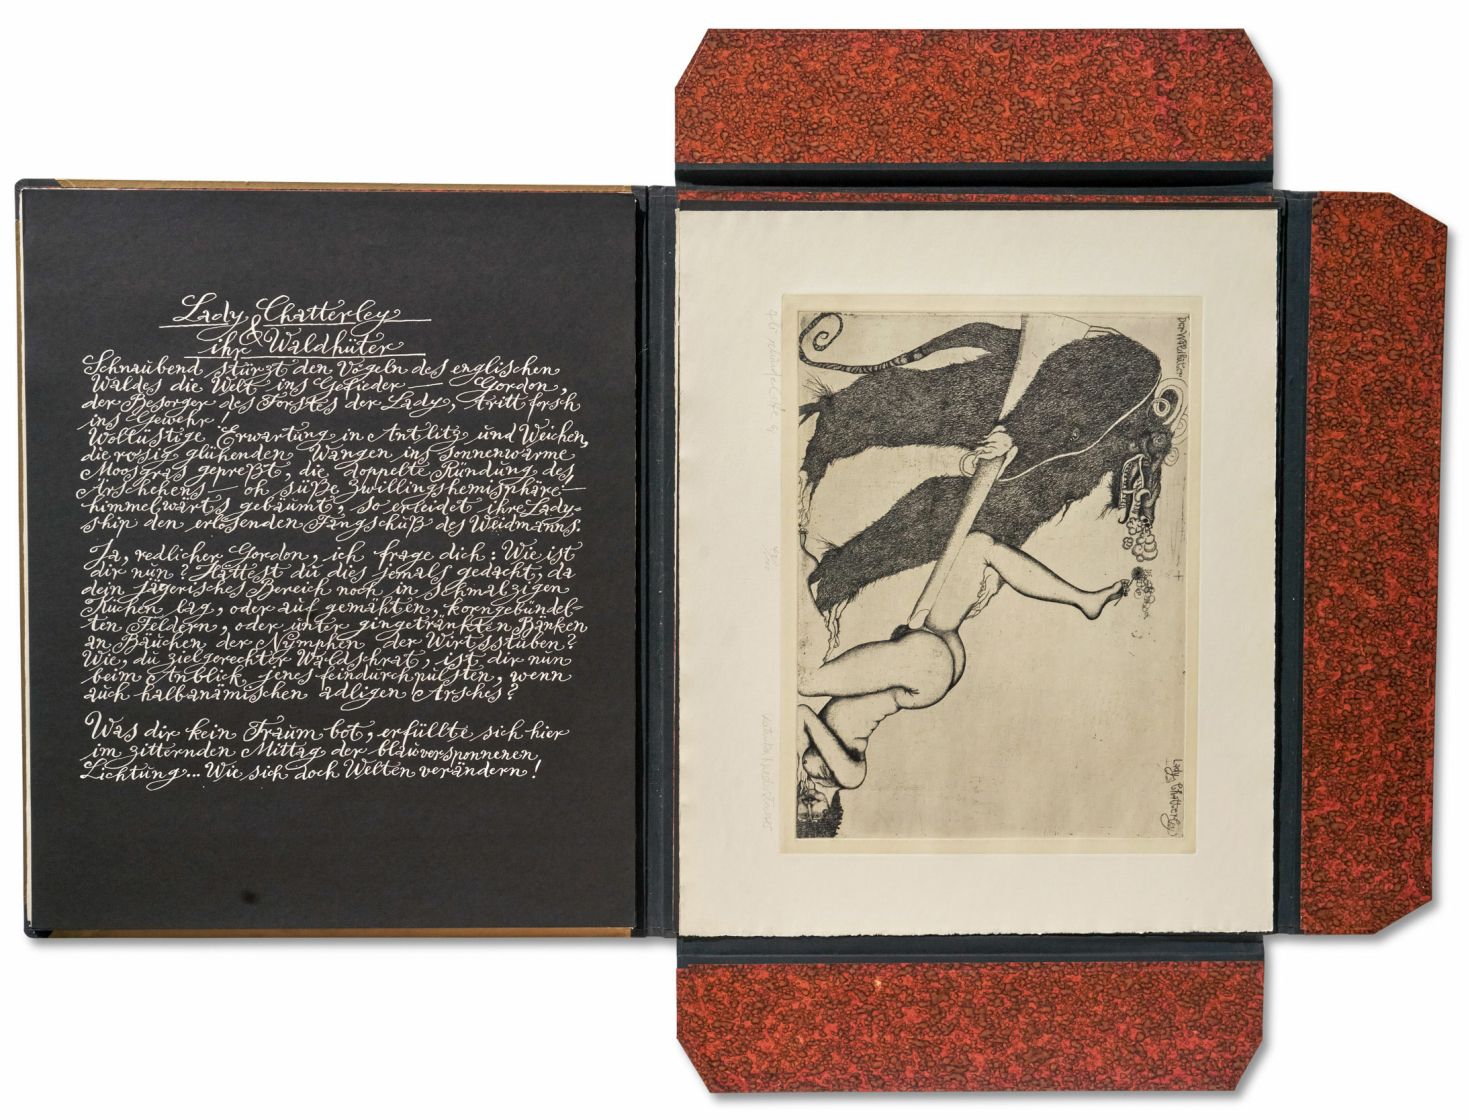 Lady Chatterley
&
ihr Waldhüter
Schnaubend stürzt den Vögeln des englischen
Waldes die Welt ins Gefieder — Gordon,
der Besorger des Forstes der Lady, tritt forsch
ins Gewehr!
Wollüstige Erwartung in Antlitz und Weichen,
die rosig glühenden Wangen ins sonnenwarme
Moosgras gepreßt, die doppelte Ründung des
Ärschchens — oh süße Zwillingshemisphäre —
himmelwärts gebäumt, so erleidet ihre Lady-
ship den erlösenden Fangschuß des Weidmanns.
Ja, redlicher Gordon, ich frage dich: Wie ist
dir nun? Hättest du dies jemals gedacht, da
dein jägerisches Bereich noch in schmalzigen
Küchen lag, oder auf gemähten, korngebündel-
ten Feldern, oder unter gingetränkten Bänken
an Bäuchen der Nymphen der Wirtsstuben?
Wie, du zielgerechter Waldschrat, ist dir nun
beim Anblick jenes feindurchpulsten, wenn
auch halbanämischen adligen Arsches?
Was dir kein Traum bot, erfüllte sich hier
im zitternden Mittag der blauversponnenen
Lichtung... Wie sich doch Welten verändern!
Der Waldhüter
Lady Chatterley